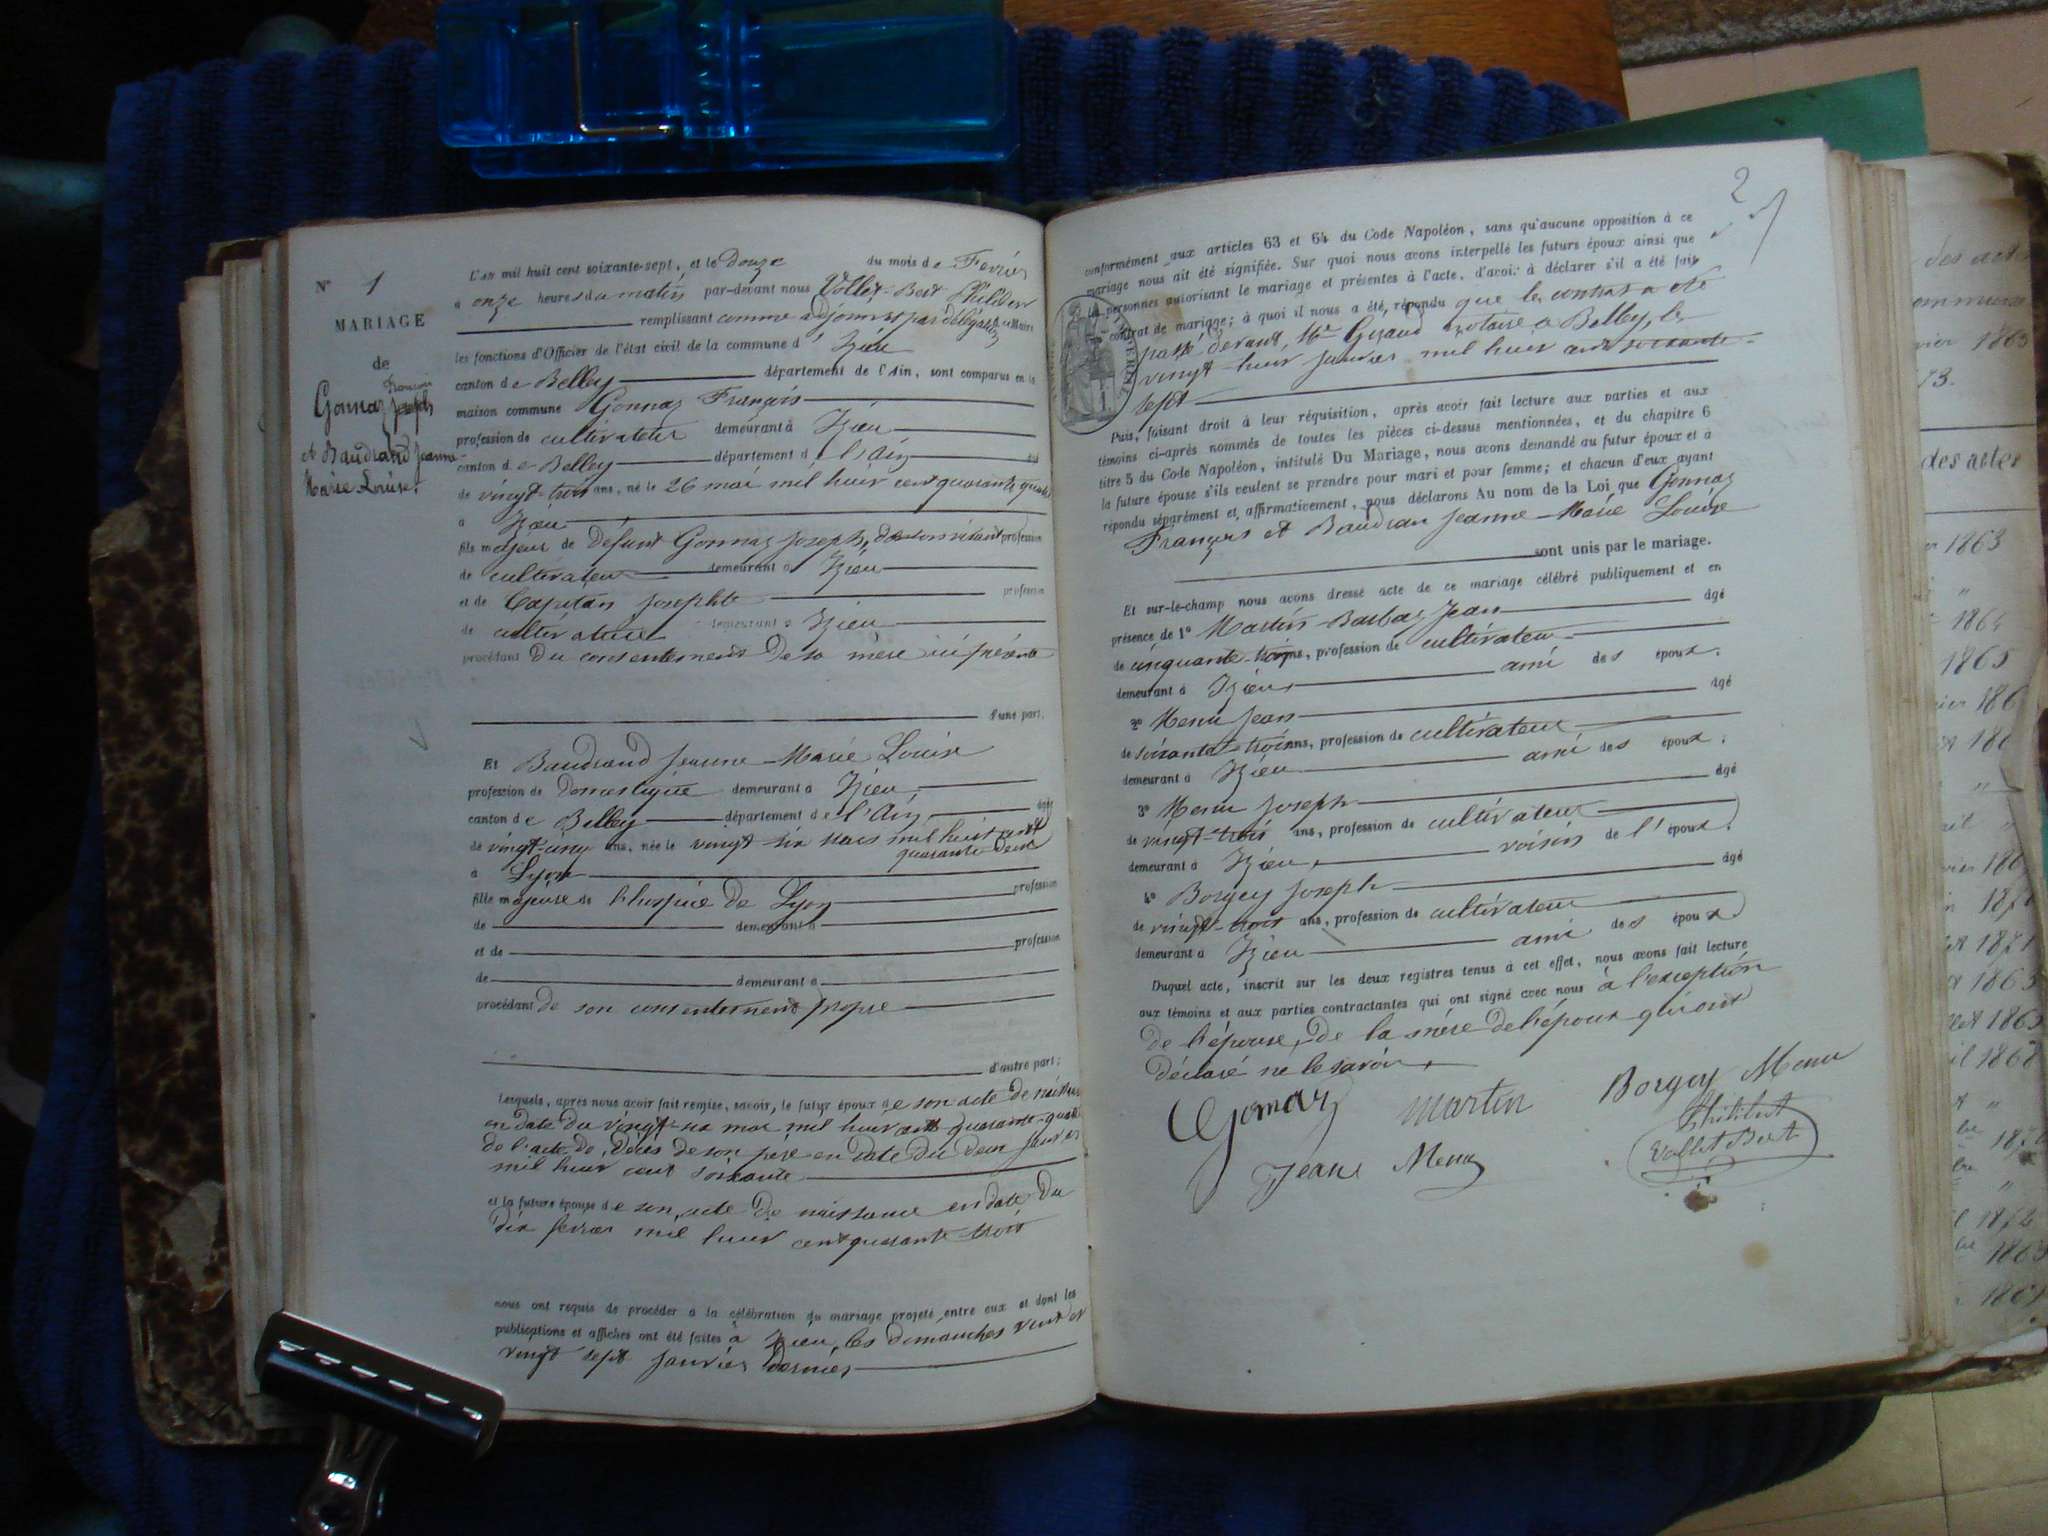 N° 1
MARIAGE
de
Gonnaz François Joseph
et Baudrand Jeanne
Marie Louise.
L'an mil huit cent soixante-sept, et le douze du mois de Fevrier
a onze heures du matin par-devant nous Vollet-Bert Philibert
remplissant comme adjoint par délégation du Maire
les fonctions d'Officier de l'état civil de la commune d'Izieu
canton de Belley département de l'Ain, sont comparus en la
maison commune Gonnaz François
profession de cultivateur demeurant à Izieu
canton de Belley département de l'Ain âgé
de vingt-trois ans, né le 26 mai mil huit cent quarante quatre
a Izieu
fils majeur de défunt Gonnaz Joseph, de son vivant profession
de cultivateur demeurant à Izieu
et de Capitan Josephte profession
de cultivatrice demeurant à Izieu
procédant du consentement de sa mère ici présente
d'une part.
Et Baudrand Jeanne-Marie Louise
profession de domestique demeurant à Izieu
canton de Belley département de l'Ain âgée
de vingt-cinq ans, née le vingt six mars mil huit cent
quarante deux
à Lyon
fille majeure de l'hospice de Lyon profession
de demeurant à
et de profession
de demeurant à
procédant de son consentement propre
d'autre part;
Lesquels, après nous avoir fait remise, savoir, le futur époux de son acte de naissance
en date du vingt-six mai mil huit cent quarante-quatre
de l'acte de décès de son père en date du deux janvier
mil huit cent soixante
et la future épouse de son acte de naissance en date du
dix fevrier mil huit cent quarante trois
nous ont requis de procéder a la célébration du mariage projeté entre eux et dont les
publications et affiches ont été faites à Izieu, les dimanches vingt et
vingt sept janvier dernier
2
conformément aux articles 63 et 64 du Code Napoléon, sans qu'aucune opposition à ce
mariage nous ait été signifiée. Sur quoi nous avons interpellé les futurs époux ainsi que
les personnes autorisant le mariage et présentes à l'acte, d'avoir à déclarer s'il a été fait
contrat de mariage; à quoi il nous a été répondu que le contrat a été
passé devant Me Giraud notaire à Belley, le
vingt-huit janvier mil huit cent soixante
sept
Puis, faisant droit à leur réquisition, après avoir fait lecture aux parties et aux
témoins ci-après nommés de toutes les pièces ci-dessus mentionnées, et du chapitre 6
titre 5 du Code Napoléon, intitulé Du Mariage, nous avons demandé au futur époux et à
la future épouse s'ils veulent se prendre pour mari et pour femme; et chacun d'eux ayant
répondu séparément et affirmativement, nous déclarons Au nom de la Loi que Gonnaz
François et Baudran Jeanne-Marie Louise
sont unis par le mariage.
Et sur-le-champ nous avons dressé acte de ce mariage célébré publiquement et en
présence de 1° Martin-Barbaz Jean âgé
de cinquante-trois ans, profession de cultivateur
demeurant à Izieu ami des époux.
2° Menu Jean âgé
de soixante-trois ans, profession de cultivateur
demeurant à Izieu ami des époux;
3° Menu Joseph âgé
de vingt-trois ans, profession de cultivateur
demeurant à Izieu, voisin de l'époux.
4° Borgey Joseph âgé
de vingt-trois ans, profession de cultivateur
demeurant à Izieu ami des époux
Duquel acte, inscrit sur les deux registres tenus à cet effet, nous avons fait lecture
aux témoins et aux parties contractantes qui ont signé avec nous à l'exception
de l'épouse, de la mère de l'époux qui ont
déclaré ne le savoir.
Gonnaz Martin Borgey Menu
Philibert
Vollet Bert
Jean Menu
des actes
1863
73.
des actes
1863
"
1864
1865
"
1871
1863
1868
"
1872